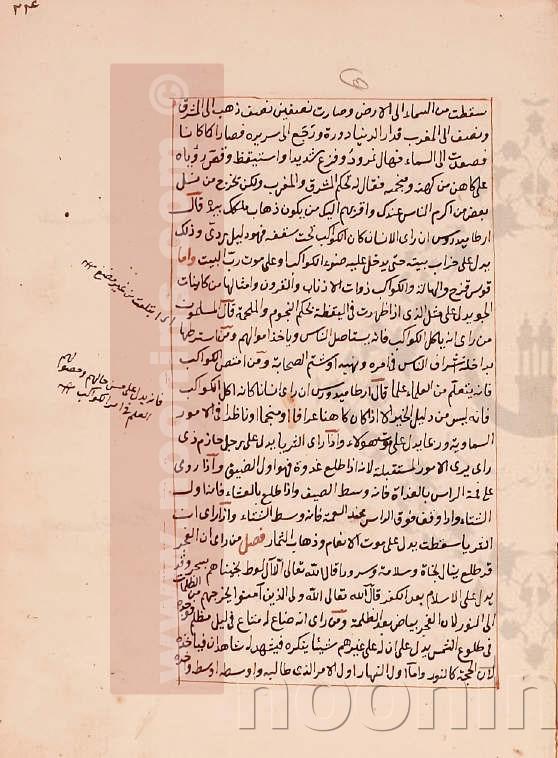 ٢٢٤
سقطت من السماء الى الارض وصارت نصفين نصف ذهب الى المشرق
ونصف الى المغرب فدار الدنيا دورة ورجع الى سريره فصارا كما كانا
فصعدت الى السماء فهال نمرود وفزع شديدا واستيقظ وقص رؤياه
على كاهن من كهنته ومنجمه فقال له تحكم المشرق والمغرب ولكن يخرج من نسل
بعض من اكرم الناس عندك واقربهم اليك من يكون ذهاب ملكك بيده قال
ارطاميدروس ان راى الانسان كان الكواكب تحت سقفه فهو دليل ردئ وذلك
يدل على خراب بيته حتى يدخل عليه ضوء الكواكب وعلى موت رب البيت واما
قوس قزح والهالة والكواكب ذوات الاذناب والقرون وامثالها من كاينات
الجو يدل على مثل الذى اذا ظهرت فى اليقظة بحكم النجوم والملحمة قال المسلمون
من راى انه ياكل الكواكب فانه يستاصل الناس وياخذ اموالهم ومن استرطها
بداخله اشراف الناس فى امره وربما شتم الصحابة ومن امتص الكواكب
فانه يتعلم من العلماء علما قال ارطاميدوس ان راى انسانا كانه اكل الكواكب
فانه ليس من دليل الخير الا اذا كان كاهنا عرافا او منجما وناظرا فى الامور
السماوية وربما يدل على موت هولاء واذا راى الثريا يدل على رجل حازم ذى
راى يرى الامور المستقبلة لانه اذا طلع غدوة فهو اول الصيف واذا روى
على قمة الراس بالغداة فانه وسط الصيف واذا طلع بالعشاء فانه اول
الشتاء واذا وقف فوق الراس عند العتمة فانه وسط الشتاء واذا راى ان
الثريا سقطت يدل على موت الانعام وذهاب الثمار فصل من راى ان الفجر
قد طلع ينال نجاة وسلامة وسرورا قال الله تعالى الا آل لوط نجيناهم بسحر وقد
يدل على الاسلام بعد الكفر قال الله تعالى الله ولى الذين آمنوا يخرجهم من الظلمات
الى النور لان الفجر بياض بعد الظلمة ومن راى انه ضاع له متاع فى ليل مظلم فوجده
فى طلوع الشمس يدل على ان له على غيرهم شيئا ينكره فيشهد له شاهدان فياخذه
لان الحجة كالنور واما اول النهار اول الامر الذى طالبه واوسطه اوسط وآخره
فانه يدل على حسن حالهم وحصول
العلم فى امر الكواكب
www.noonine.com
©
noonin